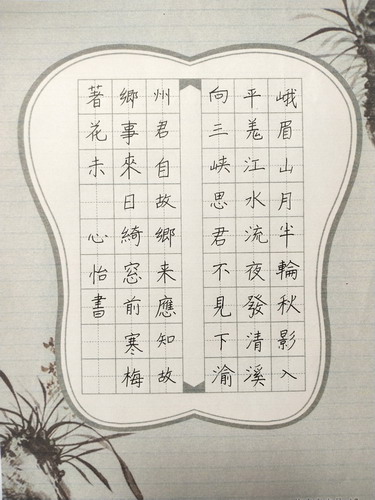 峨眉山月半輪秋影入
平羗江水流夜發清溪
向三峽思君不見下渝
州君自故鄉来應知故
鄉事來日綺窓前寒梅
著花未 心怡書